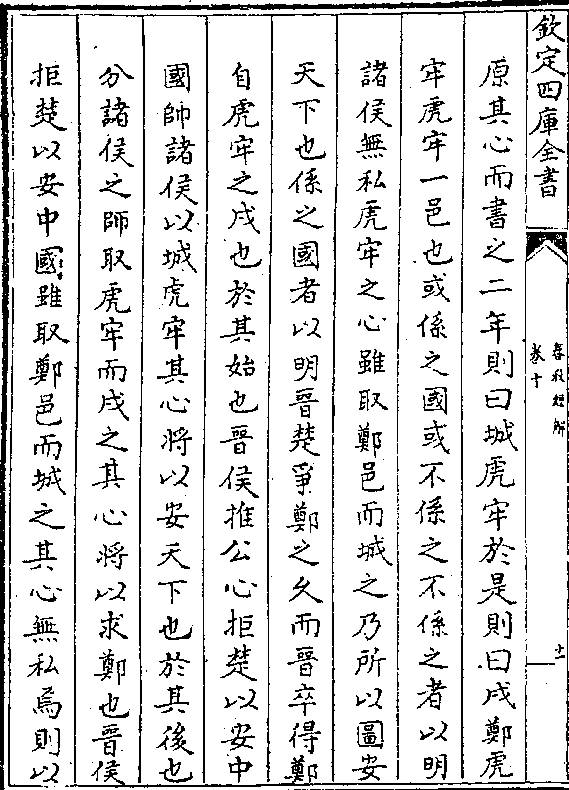 欽定四庫全書
春秋經解
卷十
十一
原其心而書之二年則曰城虎牢於是則曰戍鄭虎
牢虎牢一邑也或係之國或不係之不係之者以明
諸侯無私虎牢之心雖取鄭邑而城之乃所以圖安
天下也係之國者以明晉楚爭鄭之久而晉卒得鄭
自虎牢之戍也於其始也晉侯推公心拒楚以安中
國帥諸侯以城虎牢其心將以安天下也於其後也
分諸侯之師取虎牢而戍之其心將以求鄭也晉侯
拒楚以安中國雖取鄭邑而城之其心無私焉則以